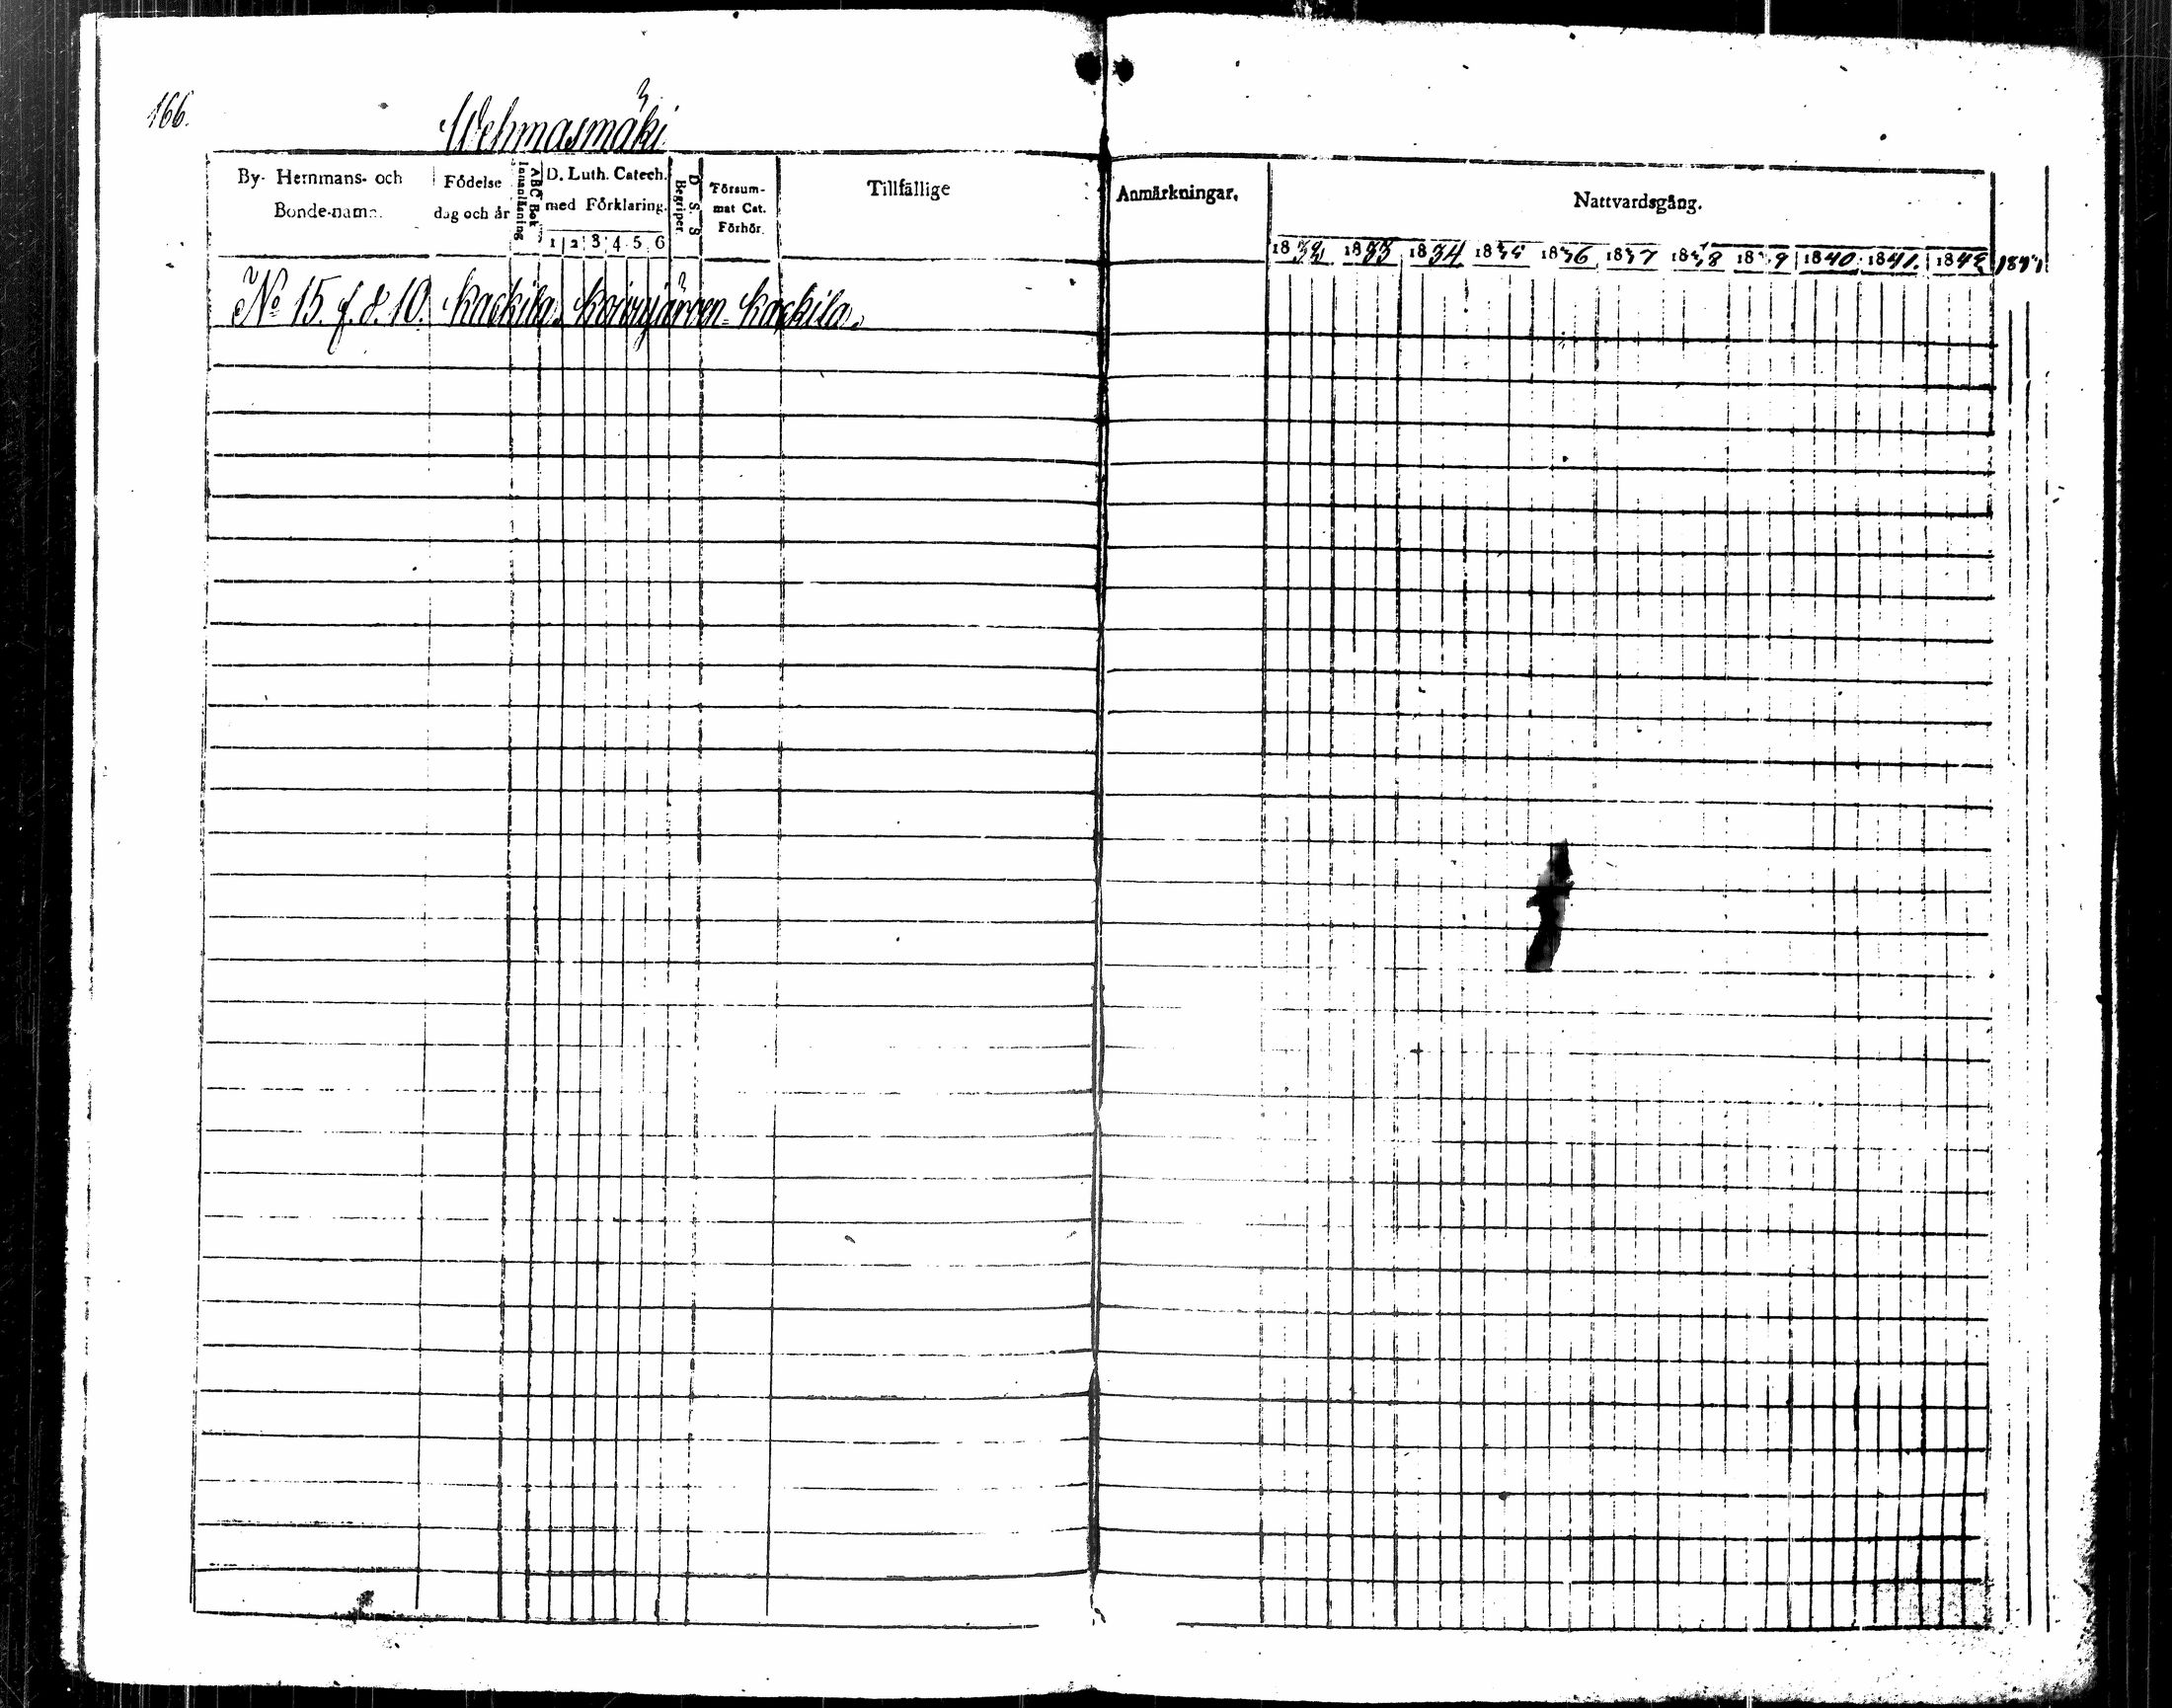 166.
Wehmasmäki
By- Herrmans- och
Bonde-namn.
Födelse
dag och år
ABC Bok
Innanläsning
D. Luth. Catech.
med Förklaring.
1 2 3 4 5 6
D. S. S
Begriper.
Försum-
mat Cat.
Förhör.
Tillfällige
Anmärkningar.
Nattvardsgång.
1832 1833 1834 1835 1836 1837 1838 1839 1840 1841. 1842 1843
No 15. f. d. 10. Kackila. Koivujärven-Kackila.